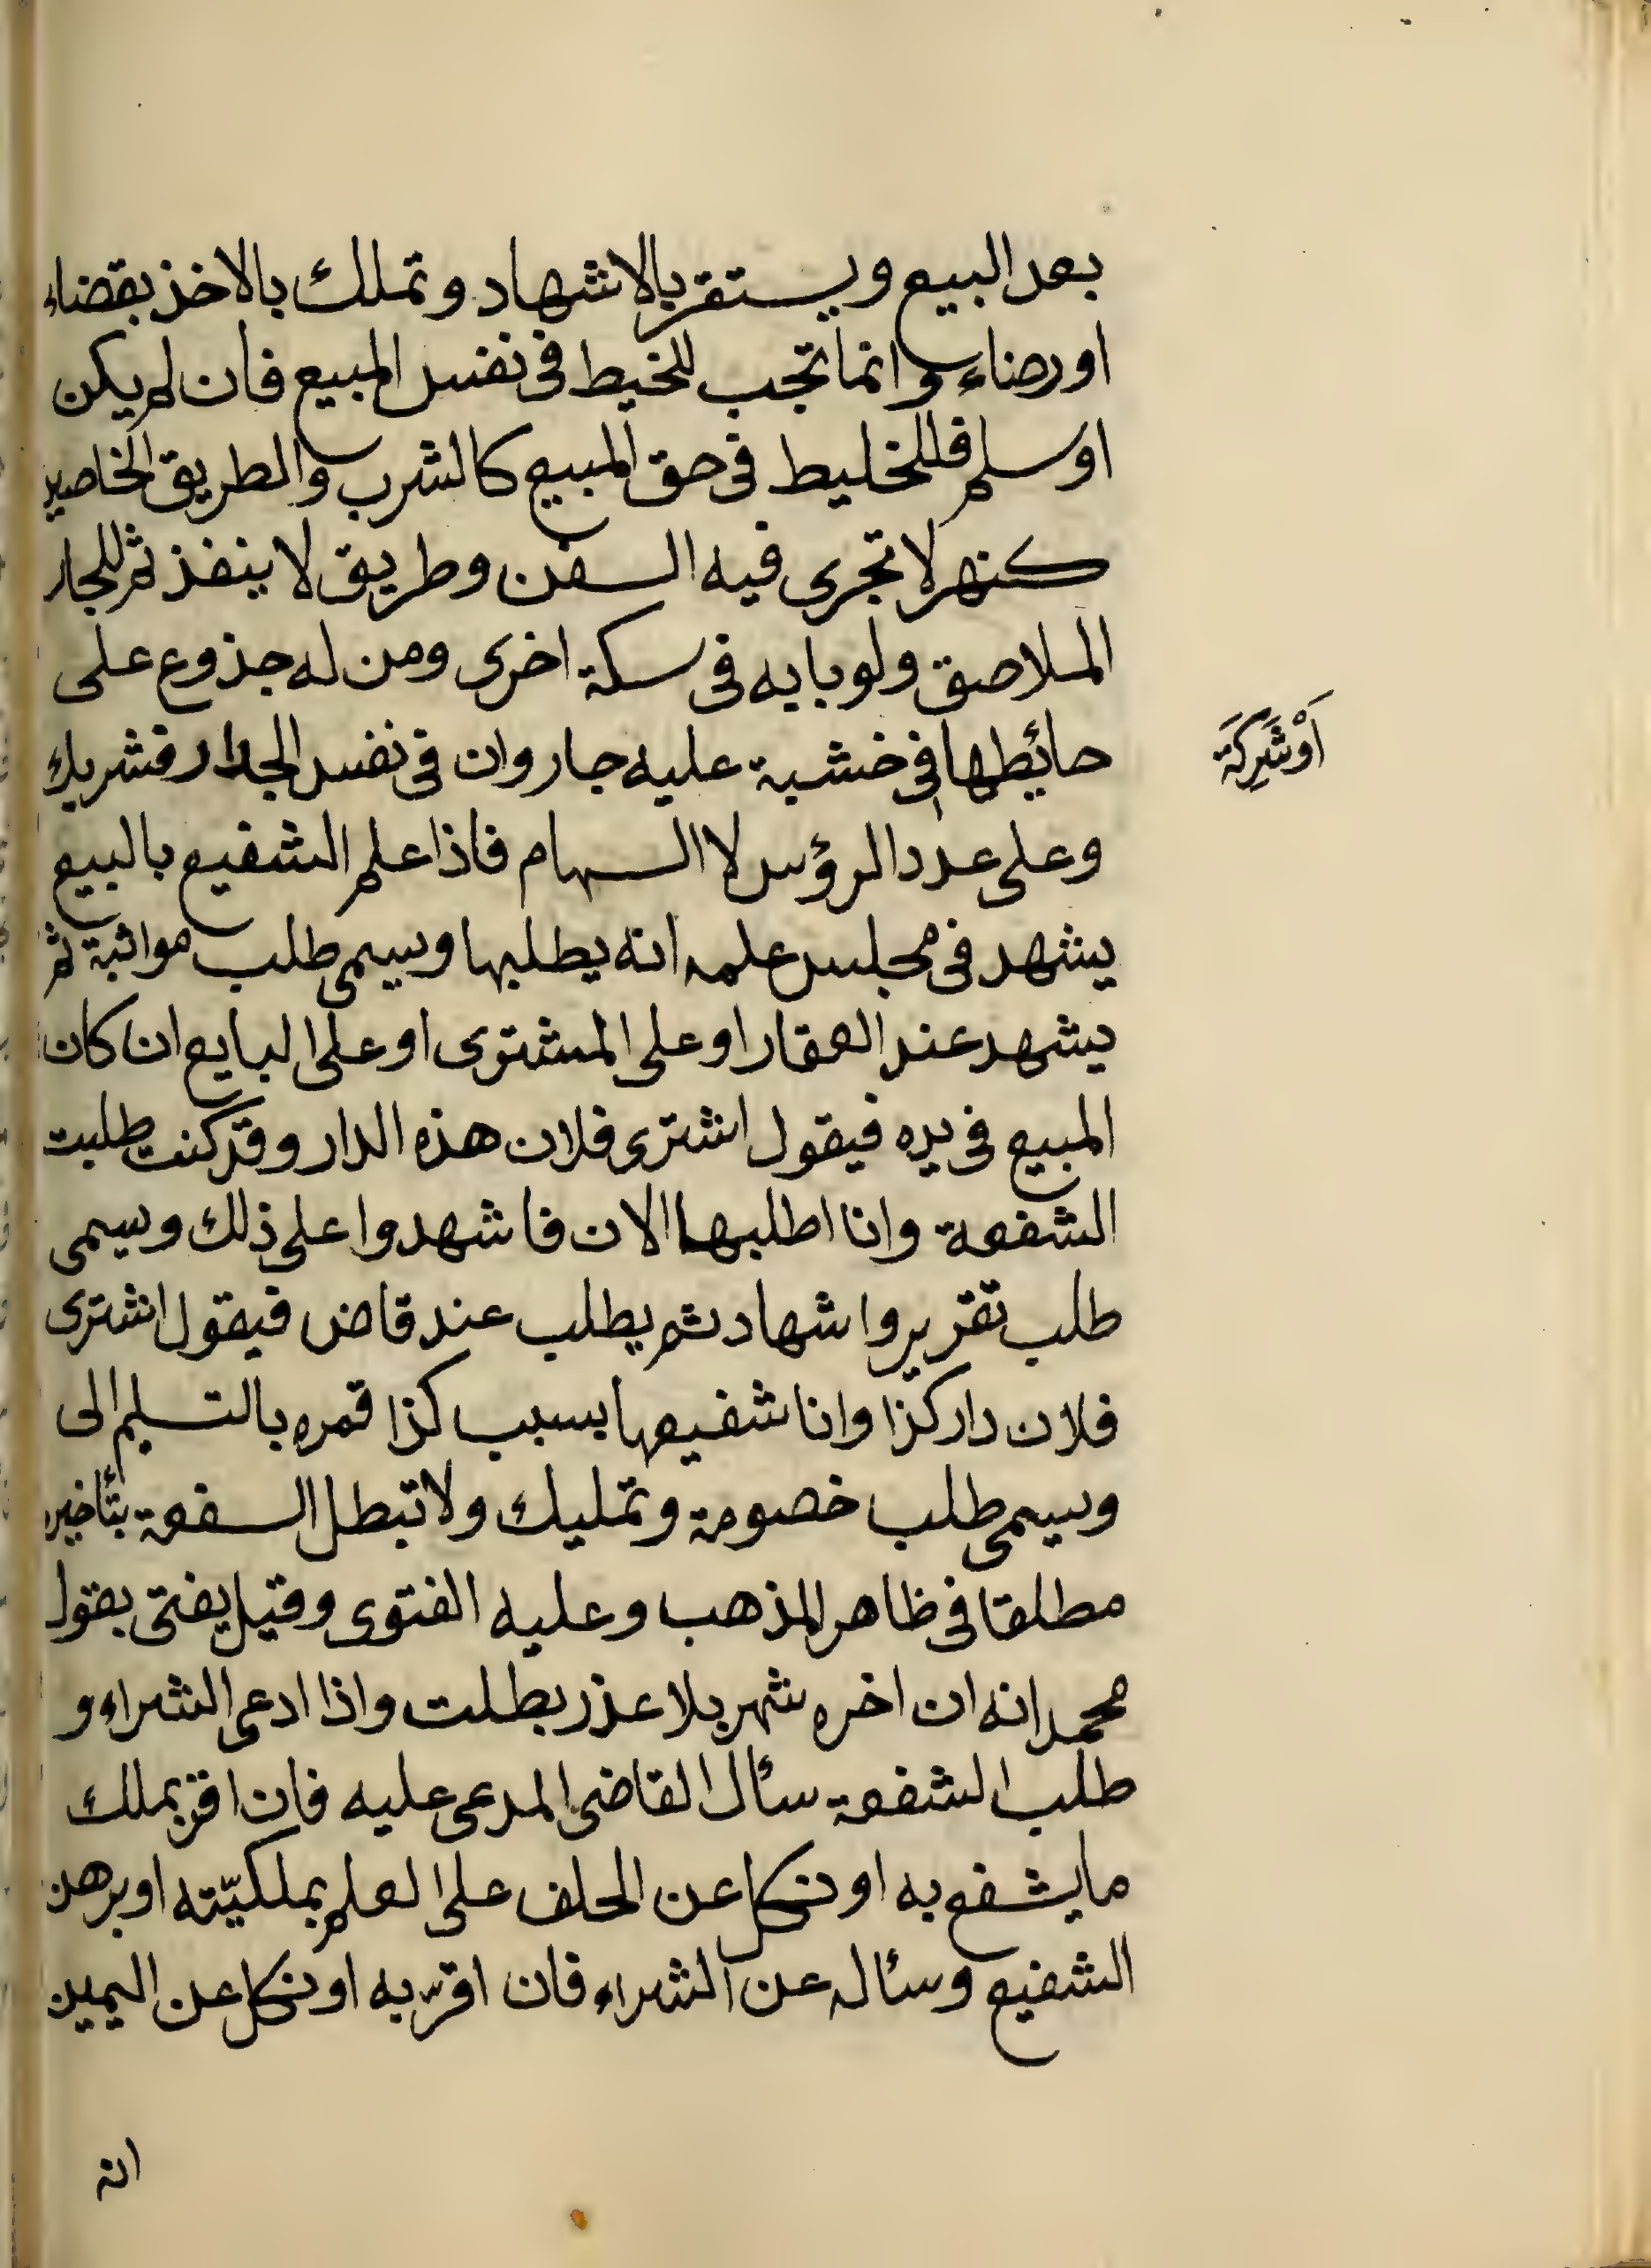 بعد البيع ويستقر بالاشهاد وتملك بالاخذ بقضاء
او رضاء وانما تجب للخيط فى نفس المبيع فان لم يكن
او سلم فللخليط فى حق المبيع كالشرب والطريق الخاصين
كنهر لا تجرى فيه السفن وطريق لا ينفذ ثم للجار
الملاصق ولو بابه فى سكة اخرى ومن له جذوع على
حائطها فى خشبة عليه جار وان فى نفس الجدار فشريك
اَوْشَرِكَة
وعلى عدد الرؤس لا السهام فاذا علم الشفيع بالبيع
يشهد فى مجلس علمه انه يطلبها ويسمى طلب مواثبة ثم
يشهد عند العقار او على المشترى او على البايع ان كان
المبيع فى يده فيقول اشترى فلان هذه الدار وقد كنت طلبت
الشفعة وانا اطلبها الان فاشهدوا على ذلك ويسمى
طلب تقرير واشهاد ثم يطلب عند قاض فيقول اشترى
فلان دار كذا وانا شفيعها بسبب كذا فمره بالتسليم الى
ويسمى طلب خصومة وتمليك ولا تبطل السفعة بتأخيره
مطلقا فى ظاهر المذهب وعليه الفتوى وقيل يفتى بقول
محمد انه ان اخره شهر بلا عذر بطلت واذا ادعى الشراء و
طلب الشفعة سأل القاضى المدعى عليه فان اقر بملك
ما يشفع به او نكل عن الحلف على العلم بملكيّته او برهن
الشفيع وسأله عن الشراء فان اقرّ به او نكل عن اليمين
انه